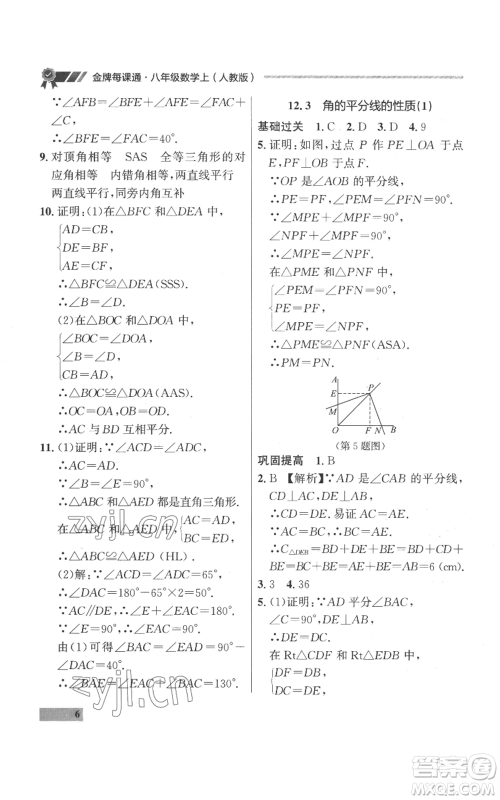 金牌每课通·八年级数学上(人教版)
∵∠AFB=∠BFE+∠AFE=∠FAC+
∠AFE,
∴∠BFE=∠FAC=40°.
9. 对顶角相等 SAS 全等三角形的对
应角相等 内错角相等,两直线平行
两直线平行,同旁内角互补
10. 证明:(1)在△BFC和△DEA中,
AD=CB,
DE=BF,
AE=CF,
∴△BFC≌△DEA(SSS).
∴∠B=∠D.
(2)在△BOC和△DOA中,
∠BOC=∠DOA,
∠B=∠D,
CB=AD,
∴△BOC≌△DOA(AAS).
∴AC与BD互相平分.
11. (1)证明:∵∠ACD=∠ADC,
∴AC=AD.
∵∠B=∠E=90°,
∴△ABC和△AED都是直角三角形.
在△ABC和△AED中,
AC=AD,
BC=ED,
∴△ABC≌△AED(HL).
(2)解:∵∠ACD=∠ADC=65°,
∴∠DAC=180°-65°×2=50°.
∵AC∥DE,∴∠E+∠EAC=180°.
∴∠EAC=180°-∠E=90°.
由(1)可得∠BAC=∠EAD=∠EAC-
∠DAC=40°.
∴∠BAE=∠BAC+∠EAC=130°.
12.3 角的平分线的性质(1)
基础过关 1.C 2.D 3.D 4.9
5. 证明:如图,过点P作PE⊥OA于点
E,PF⊥OB于点F.
∵OP是∠AOB的平分线,
∴PE=PF,∠PEM=∠PFN=90°.
∵∠NPF+∠MPF=90°,
∠EPM+∠MPF=90°,
∴∠NPF=∠MPE.
在△PME和△PNF中,
∠PEM=∠PFN=90°,
PE=PF,
∠EPM=∠FPN,
∴△PME≌△PNF(ASA).
∴PM=PN.
A
E
P
M
O
F
N
B
(第5题图)
巩固提高 1.B
2. B 【解析】∵AD是∠CAB的平分线,
CD⊥AC,DE⊥AB,
∴CD=DE.易证AC=AE,
∴C△DEB=BD+DE+EB=BD+CD+
BE=BC+BE=AE+BE=AB=6(cm).
3. 3 4. 36
5. (1)证明:∵AD平分∠BAC,
∠C=90°,DE⊥AB,
∴DC=DE.
在Rt△CFD和Rt△EBD中,
DF=DB,
DC=DE,
6
zyjl.cn
zyjl.cn